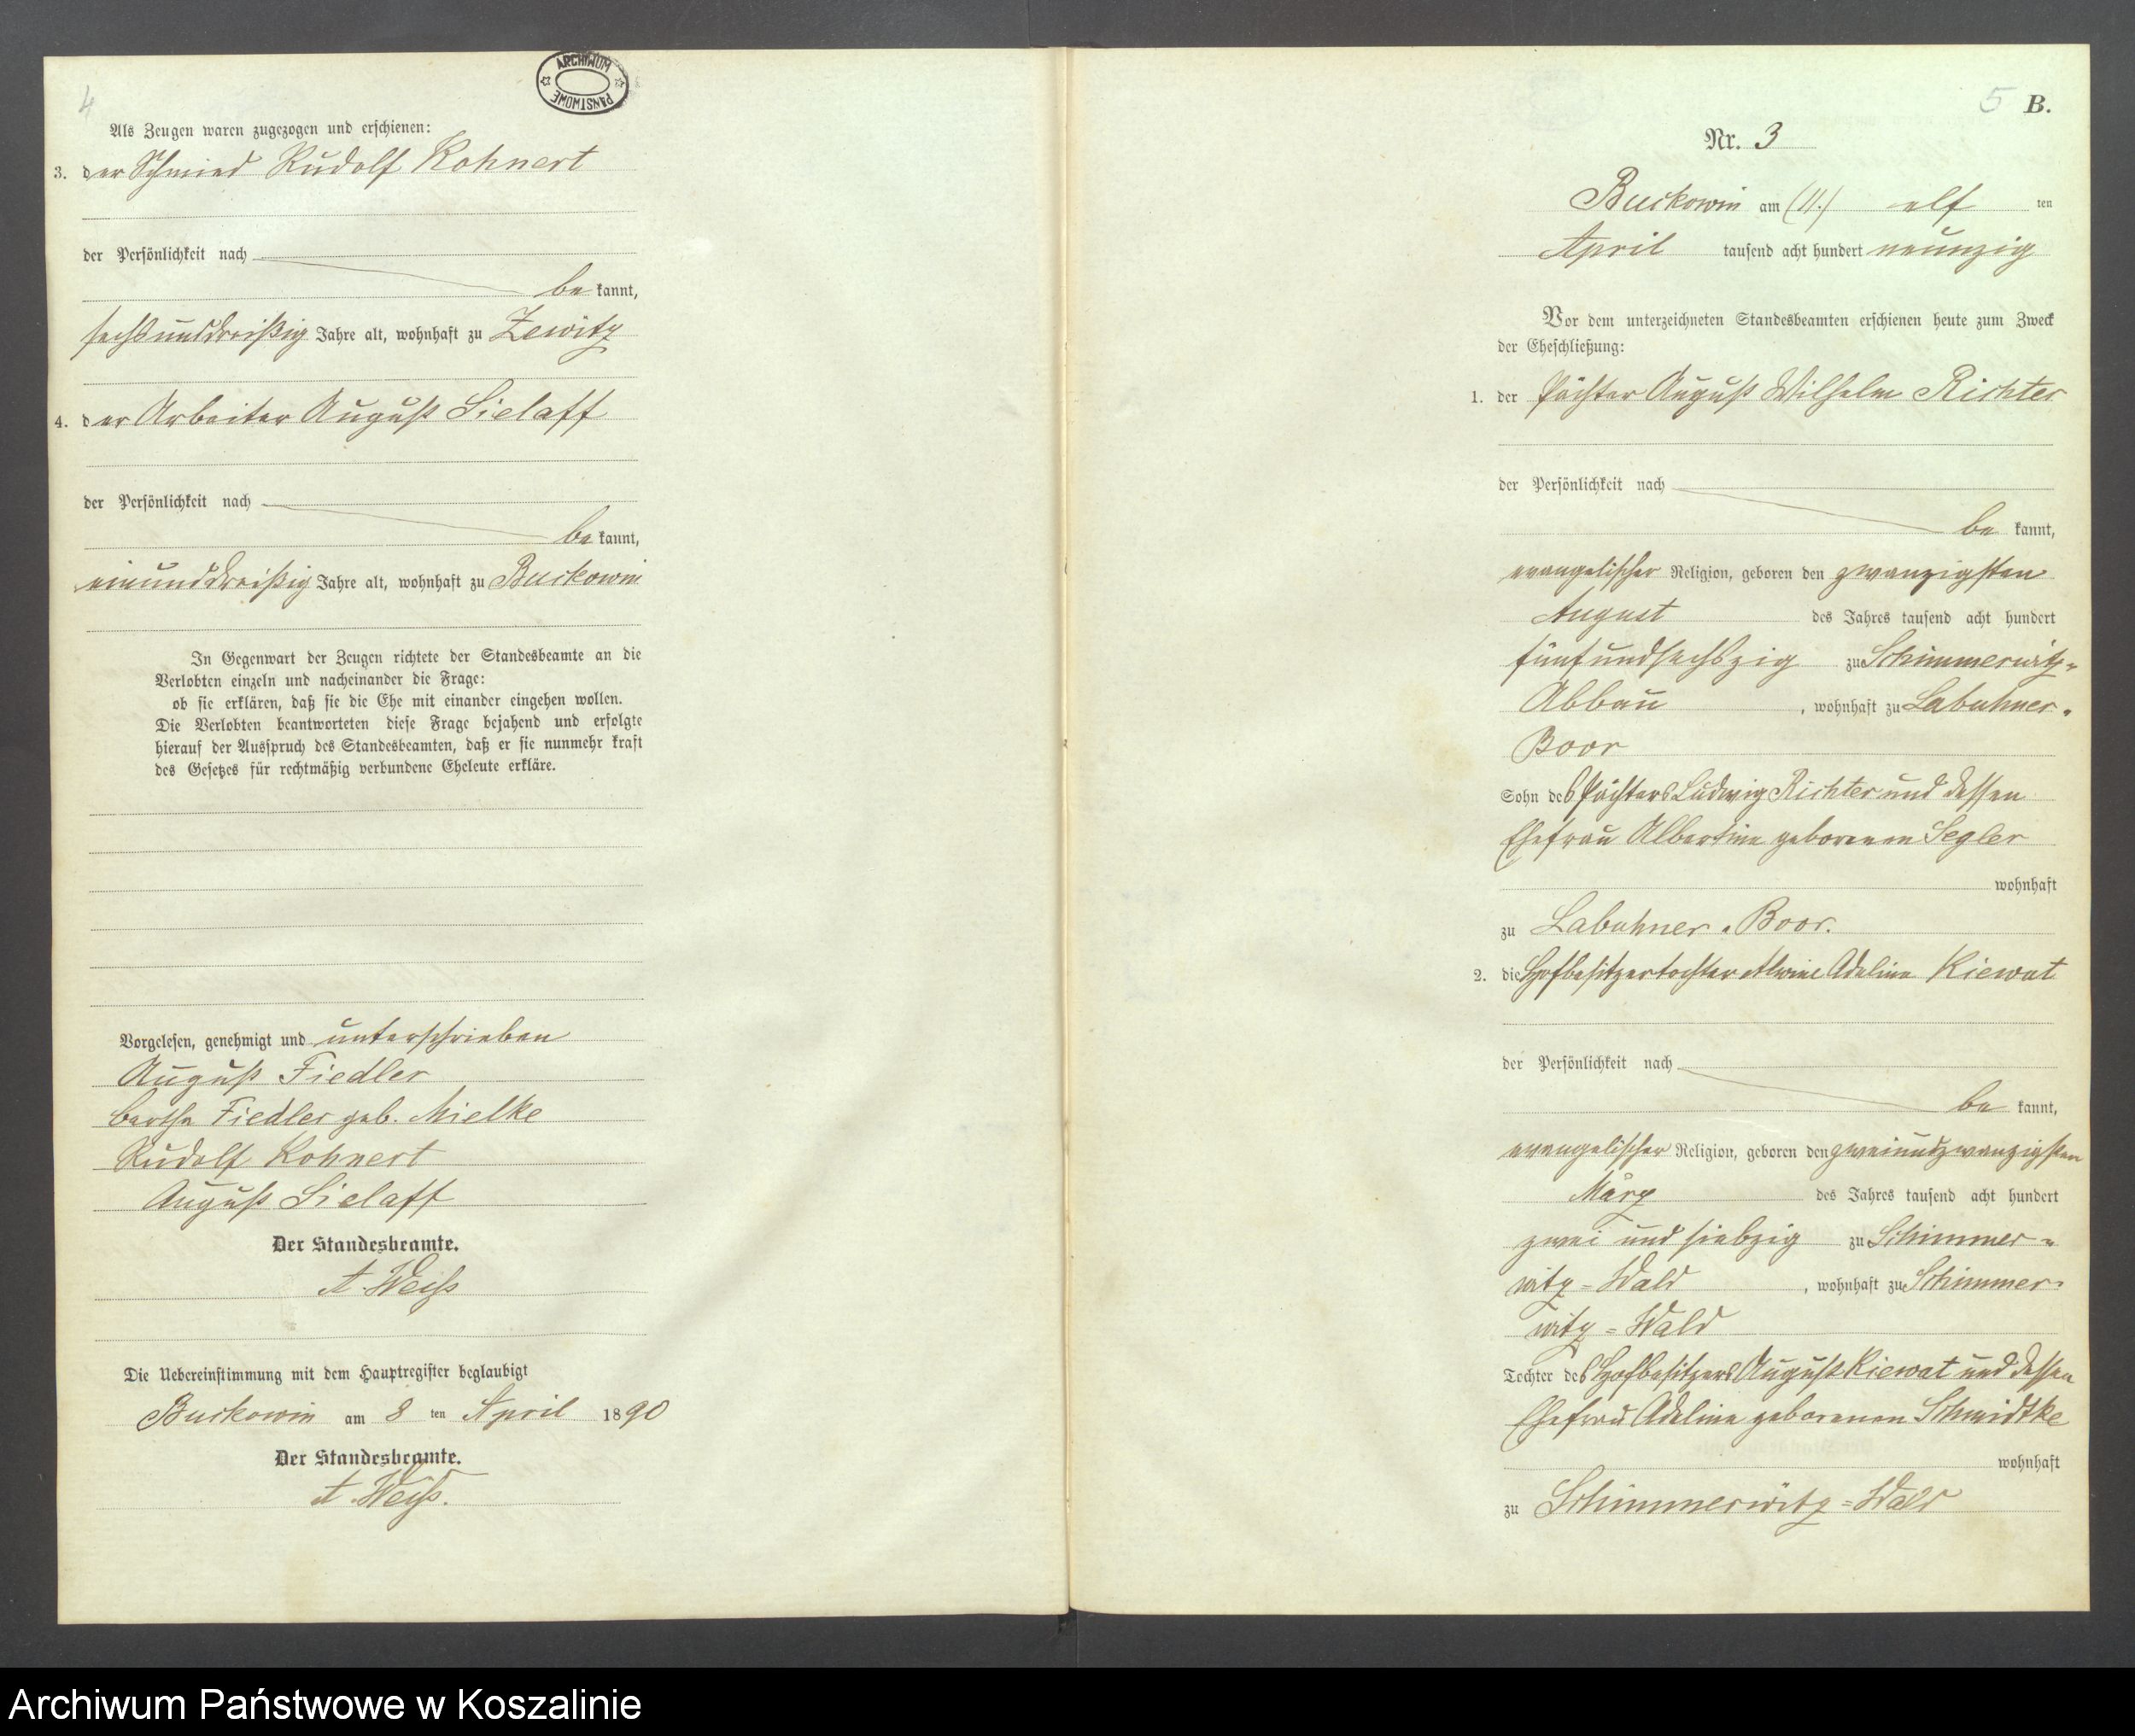 4
ARCHIWUM PAŃSTWOWE
Als Zeugen waren zugezogen und erschienen:
3. der Schmied Rudolf Kohnert
der Persönlichkeit nach
be kannt,
sechsunddreißig Jahre alt, wohnhaft zu Zewitz
4. der Arbeiter August Sielaff
der Persönlichkeit nach
be kannt,
einunddreißig Jahre alt, wohnhaft zu Buckowin
In Gegenwart der Zeugen richtete der Standesbeamte an die
Verlobten einzeln und nacheinander die Frage:
ob sie erklären, daß sie die Ehe mit einander eingehen wollen.
Die Verlobten beantworteten diese Frage bejahend und erfolgte
hierauf der Ausspruch des Standesbeamten, daß er sie nunmehr kraft
des Gesetzes für rechtmäßig verbundene Eheleute erkläre.
Vorgelesen, genehmigt und unterschrieben
August Fiedler
Bertha Fiedler geb. Mielke
Rudolf Kohnert
August Sielaff
Der Standesbeamte.
A. Weiß
Die Uebereinstimmung mit dem Hauptregister beglaubigt
Buckowin am 8 ten April 1890
Der Standesbeamte.
A. Weiß.
5 B.
Nr. 3
Buckowin am (11.) elf ten
April tausend acht hundert neunzig
Vor dem unterzeichneten Standesbeamten erschienen heute zum Zweck
der Eheschließung:
1. der Pächter August Wilhelm Richter
der Persönlichkeit nach
be kannt,
evangelischer Religion, geboren den zwanzigsten
August des Jahres tausend acht hundert
fünfundsechszig zu Schimmerwitz-
Abbau , wohnhaft zu Labuhner-
Boor
Sohn des Pächters Ludwig Richter und dessen
Ehefrau Albertine geborenen Segler
wohnhaft
zu Labuhner-Boor.
2. die Hofbesitzertochter Alwine Adeline Kiewat
der Persönlichkeit nach
be kannt,
evangelischer Religion, geboren den zweiundzwanzigsten
März des Jahres tausend acht hundert
zwei und siebzig zu Schimmer-
witz-Wald , wohnhaft zu Schimmer-
witz-Wald
Tochter des Hofbesitzers August Kiewat und dessen
Ehefrau Adeline geborenen Schmidtke
wohnhaft
zu Schimmerwitz-Wald
Archiwum Państwowe w Koszalinie